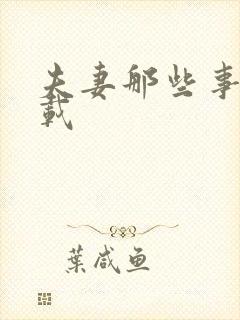 夫妻那些事
載
葉咸鱼